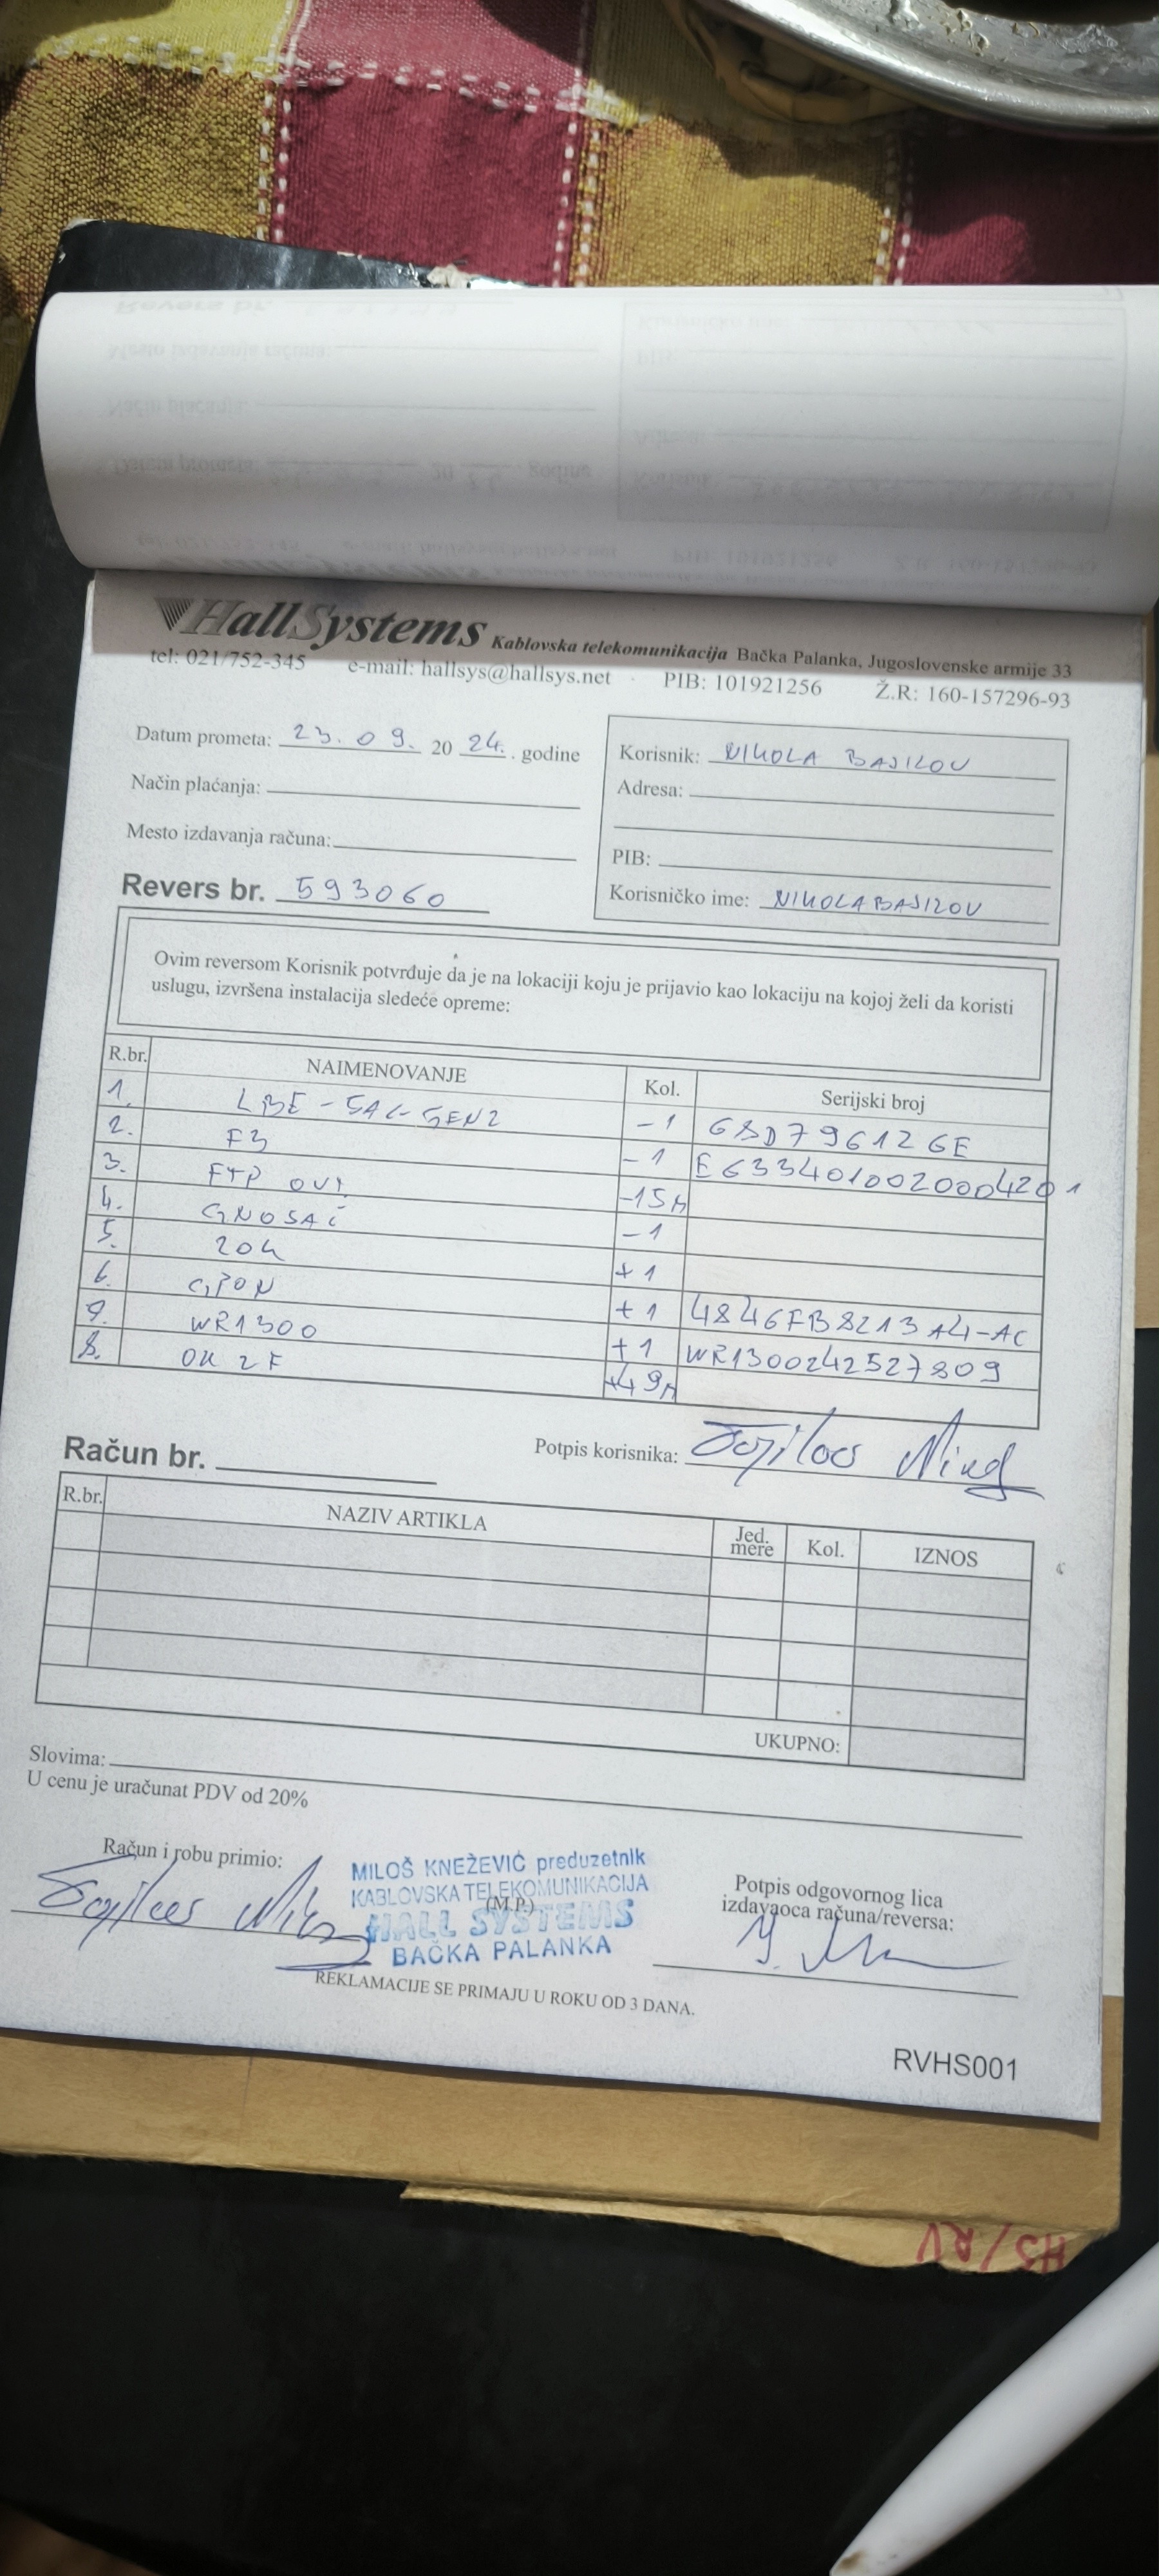 HallSystems Kablovska telekomunikacija Bačka Palanka, Jugoslovenske armije 33
tel: 021/752-345 e-mail: hallsys@hallsys.net PIB: 101921256 Ž.R: 160-157296-93
Datum prometa: 23.09. 20 24. . godine
Način plaćanja:
Mesto izdavanja računa:
Revers br. 593060
Korisnik: NIKOLA BASILOV
Adresa:
PIB:
Korisničko ime: NIKOLABASILOV
Ovim reversom Korisnik potvrđuje da je na lokaciji koju je prijavio kao lokaciju na kojoj želi da koristi
uslugu, izvršena instalacija sledeće opreme:
R.br. NAIMENOVANJE Kol. Serijski broj
1. LBE-5AC-GEN2 -1 68D796126E
2. F3 -1 E6334010020004201
3. FTP OUT -15M
4. GNOSAČ -1
5. ZOK +1
6. GPON +1 4846FB8213A4-AC
7. WR1300 +1 WR1300242527809
8. OK 2F +49M
Potpis korisnika:
Račun br.
R.br. NAZIV ARTIKLA Jed. mere Kol. IZNOS
UKUPNO:
Slovima:
U cenu je uračunat PDV od 20%
Račun i robu primio:
MILOŠ KNEŽEVIĆ preduzetnik
KABLOVSKA TELEKOMUNIKACIJA
(M.P.)
HALL SYSTEMS
BAČKA PALANKA
Potpis odgovornog lica
izdavaoca računa/reversa:
REKLAMACIJE SE PRIMAJU U ROKU OD 3 DANA.
RVHS001
HS/RV